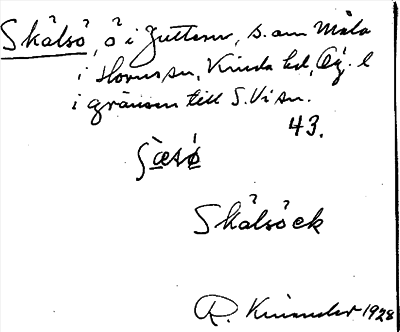 Skälsö, ö i Juttern, s. om Måla
i Horns sn, Kinda hd, Ög. l
i gränsen till S. Vi sn.
43.
Skälsöck
R. Kinander 1928